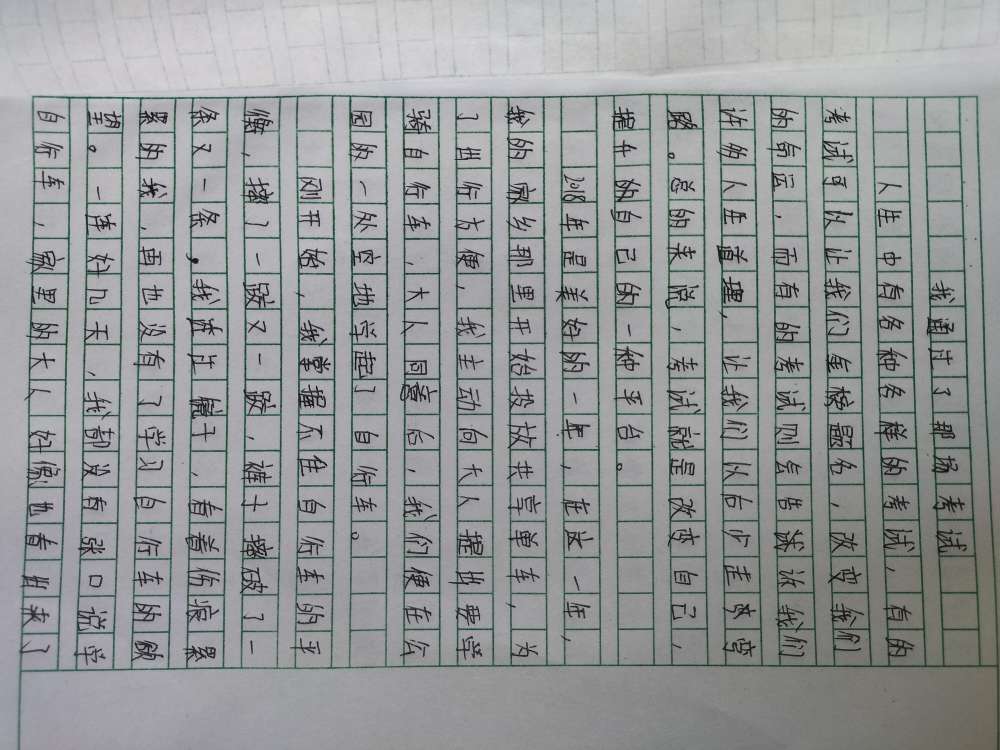 我通过了那场考试
人生中有各种各样的考试，有的
考试可以让我们金榜题名，改变我们
的命运，而有的考试则会告诉我们
许多人生道理，让我们以后少走弯
路。总的来说，考试就是改变自己，
提升自己的一种平台。
2018年是美好的一年，在这一年，
我的家乡那里开始投放共享单车，为
了出行方便，我主动向大人提出要学
骑自行车，大人同意后，我们便在公
园的一处空地学起了自行车。
刚开始，我掌握不住自行车的平
衡，摔了一跤又一跤，裤子摔破了一
条又一条，我连上镜子，看着伤痕累
累的我，再也没有了学习自行车的欲
望。一连好几天，我都没有张口说学
自行车，家里的大人好像也看出来了